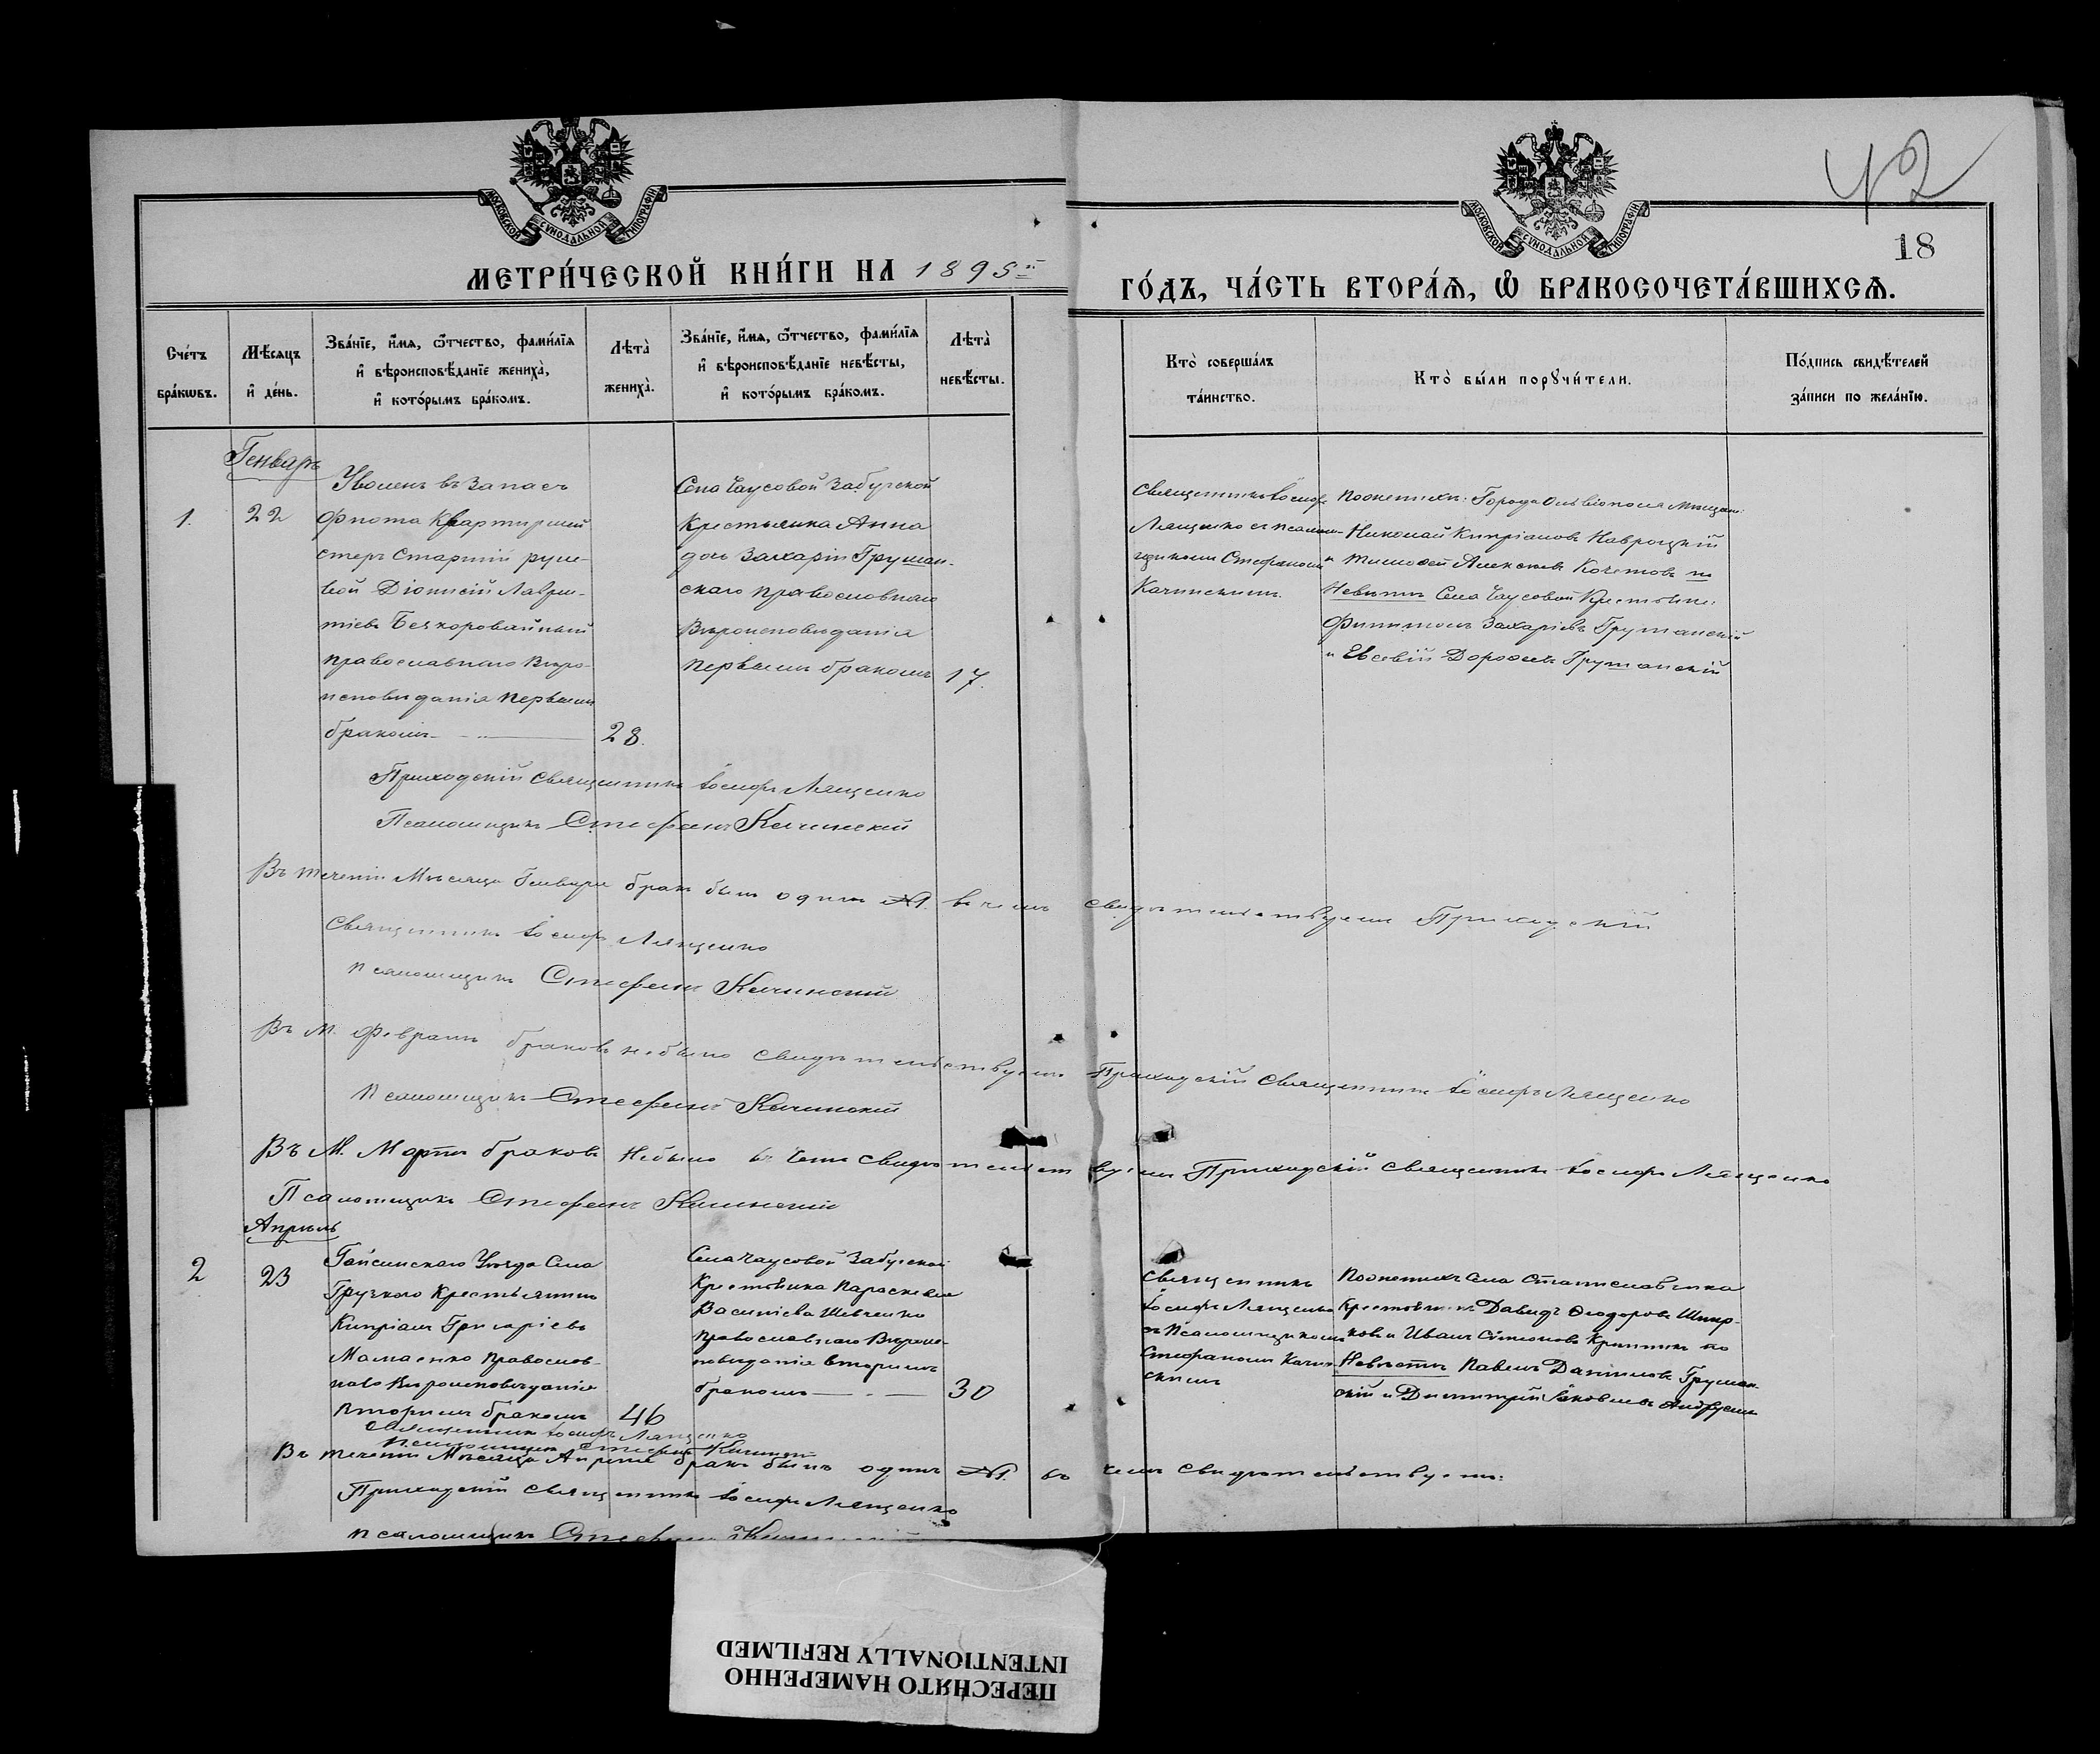 МОСКОВСКОЙ СУНОДАЛЬНОЙ ТИПОГРАФІИ
МОСКОВСКОЙ СУНОДАЛЬНОЙ ТИПОГРАФІИ
42
18
МЕТРИ́ЧЕСКОЙ КНИ́ГИ НА 1895й
ГО́ДЪ, ЧА́СТЬ ВТОРА́Ѧ, Ѡ҆ БРАКОСОЧЕТА́ВШИХСѦ.
Сче́тъ
бра́кѡвъ.
Мѣ́сѧцъ
и҆ де́нь.
Зва́нїе, и҆́мѧ, ѻ҆́тчество, фами́лїѧ
и҆ вѣроисповѣ́данїе жениха̀,
и҆ кото́рымъ бра́комъ.
Лѣта̀
жениха̀.
Зва́нїе, и҆́мѧ, ѻ҆́тчество, фами́лїѧ
и҆ вѣроисповѣ́данїе невѣ́сты,
и҆ кото́рымъ бра́комъ.
Лѣта̀
невѣ́сты.
Кто̀ соверша́лъ
та́инство.
Кто̀ бы́ли порꙋчи́тели.
По́дпись свидѣ́телей
за́писи по жела́нїю.
Генварь
1.
22
Уволенъ въ Запасъ
Флота Квартирмей
стеръ Старшій руле-
вой Діонисій Лаврен-
тіевъ Безкоровайный
православнаго Веро-
исповѣданія Первымъ
бракомъ
28.
Села Чаусовой Забугской
Крестьянка Анна
дочь Захарія Грушан-
скаго православнаго
Вѣроисповѣданія
первымъ бракомъ
17.
Священникъ Іосифъ
Лященко съ псалом-
щикомъ Стефаномъ
Качинскимъ.
По женихѣ: Города Ольвіополя Мѣщан:
Николай Кипріановъ Навроцкій
и Тимоѳей Алексѣевъ Кочетовъ по
Невѣстѣ Села Чаусовой Крестьяне:
Филимонъ Захаріевъ Грушанскій
и Евсевій Дороѳеевъ Грушанскій
Приходскій Священникъ Іосифъ Лященко
Псаломщикъ Стефанъ Качинскій
Въ теченіи Мѣсяца Генваря бракъ былъ одинъ №1. въ чемъ свидѣтельствуемъ Приходскій
Священникъ Іосифъ Лященко
псаломщикъ Стефанъ Качинскій
Въ М. Февралѣ браковъ небыло свидѣтельствуемъ Приходскій Священникъ Іосифъ Лященко
Псаломщикъ Стефанъ Качинскій
Въ М. Мартѣ браковъ Небыло въ чемъ свидѣтельствуемъ Приходскій Священникъ Іосифъ Лященко
Псаломщикъ Стефанъ Качинскій
Апрѣль
2
23
Гайсинскаго Уѣзда Села
Грузкого Крестьянинъ
Кипріанъ Григоріевъ
Мамаенко православ-
наго Вѣроисповѣданія
вторымъ бракомъ
46
Села Чаусовой Забугской
Крестьянка Параскева
Василіева Шевченко
православнаго Вѣроис-
повѣданія вторымъ
бракомъ
30
Священникъ
Іосифъ Лященко
съ Псаломщикомъ
Стефаномъ Качин-
скимъ
По женихѣ Села Станиславчика
Крестьяне Давидъ Ѳеодоровъ
и Иванъ Симеоновъ по
Невѣстѣ Павелъ Даниловъ Грушан-
скій и Димитрій Іаковлевъ
Священникъ Іосифъ Лященко
Псаломщикъ Стефанъ Качинскій
Въ теченіи Мѣсяца Апрѣля бракъ былъ одинъ №1. въ чемъ свидѣтельствуемъ:
Приходскій Священникъ Іосифъ Лященко
псаломщикъ Стефанъ Качинскій
ПЕРЕСНЯТО НАМЕРЕННО
INTENTIONALLY REFILMED